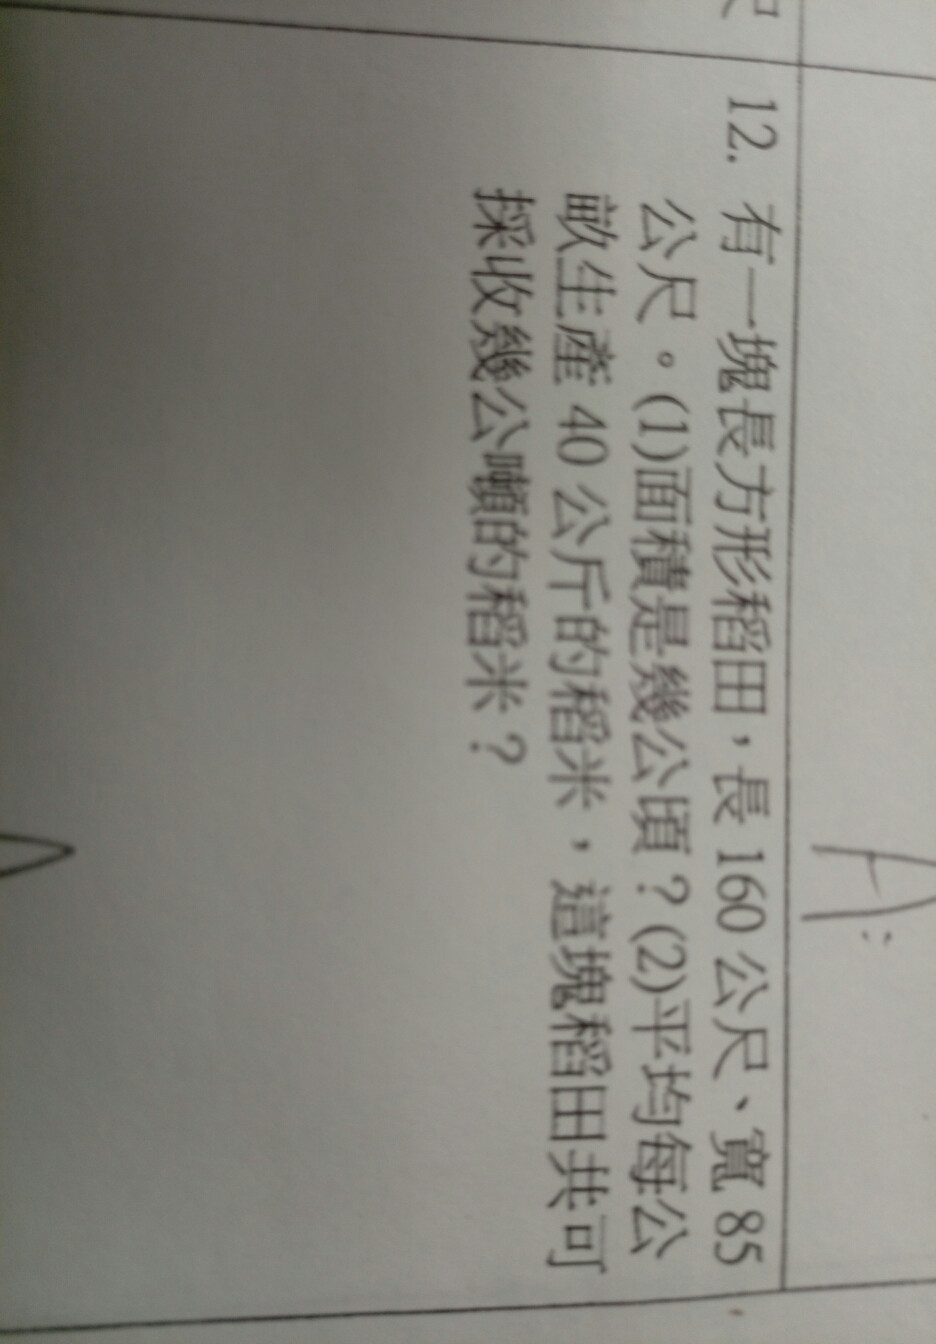 尺
12. 有一塊長方形稻田，長 160 公尺、寬 85
公尺。(1)面積是幾公頃？(2)平均每公
畝生產 40 公斤的稻米，這塊稻田共可
採收幾公噸的稻米？
A: